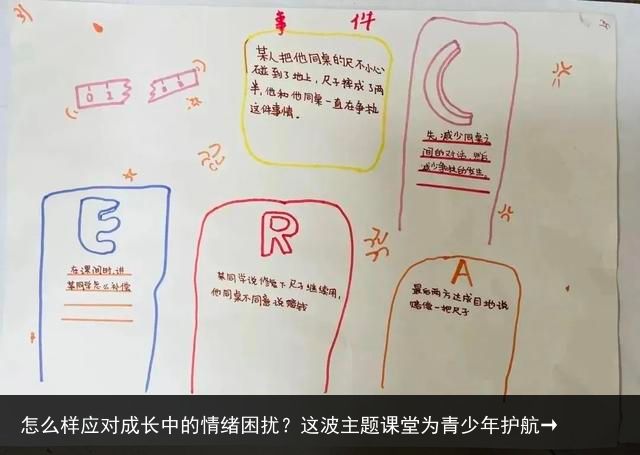 3)
事 件
某人把他同桌的尺不小心
碰到了地上，尺子摔成了两
半，他和他同桌一直在争执
这件事情。
0 1
C
先，减少同桌之
间的对话，然后
减少争执的发生。
E
在课间时，讲
某同学怎么补偿
R
某同学说修复下尺子继续用，
他同桌不同意说赔钱
A
最后两方达成目地说
赔偿一把尺子
怎么样应对成长中的情绪困扰？这波主题课堂为青少年护航→